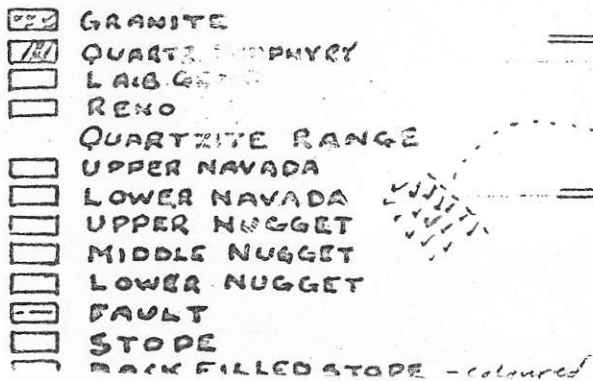 GRANITE
QUARTZ PORPHYRY
LAIB
RENO
QUARTZITE RANGE
UPPER NAVADA
LOWER NAVADA
UPPER NUGGET
MIDDLE NUGGET
LOWER NUGGET
FAULT
STOPE
BACK FILLED STOPE - coloured